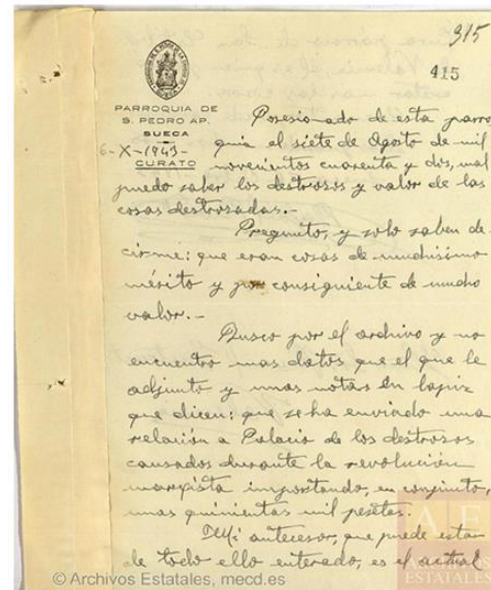 315
415
PARROQUIA DE
S. PEDRO AP.
SUECA
6-X-1943-
CURATO
Posesionado de esta parro
quia el siete de Agosto de mil
novecientos cuarenta y dos, mal
puedo saber los destrosos y valor de las
cosas destrosadas.-
Pregunto, y solo saben de-
cirme: que eran cosas de muchisimo
mérito y por consiguiente de mucho
valor.-
Busco por el archivo y no
encuentro mas datos que el que le
adjunto y unas notas en lapiz
que dicen: que se ha enviado una
relación a Palacio de los destrosos
causados durante la revolución
marxista importando, en conjunto,
unas quinientas mil pesetas.
Mi antecesor, que puede estar
de todo ello enterado, es el actual
© Archivos Estatales, mecd.es
AE
ARCHIVOS
ESTATALES